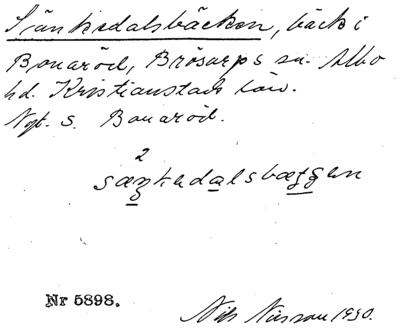 Sänkedalsbäcken, bäck i
Bonaröd, Brösarps sn. Albo
hd. Kristianstads län.
Ngt. S. Bonaröd.
2
sæŋkedalsbæʒʒen
Nr 5898.
Nils Nilsson 1930.